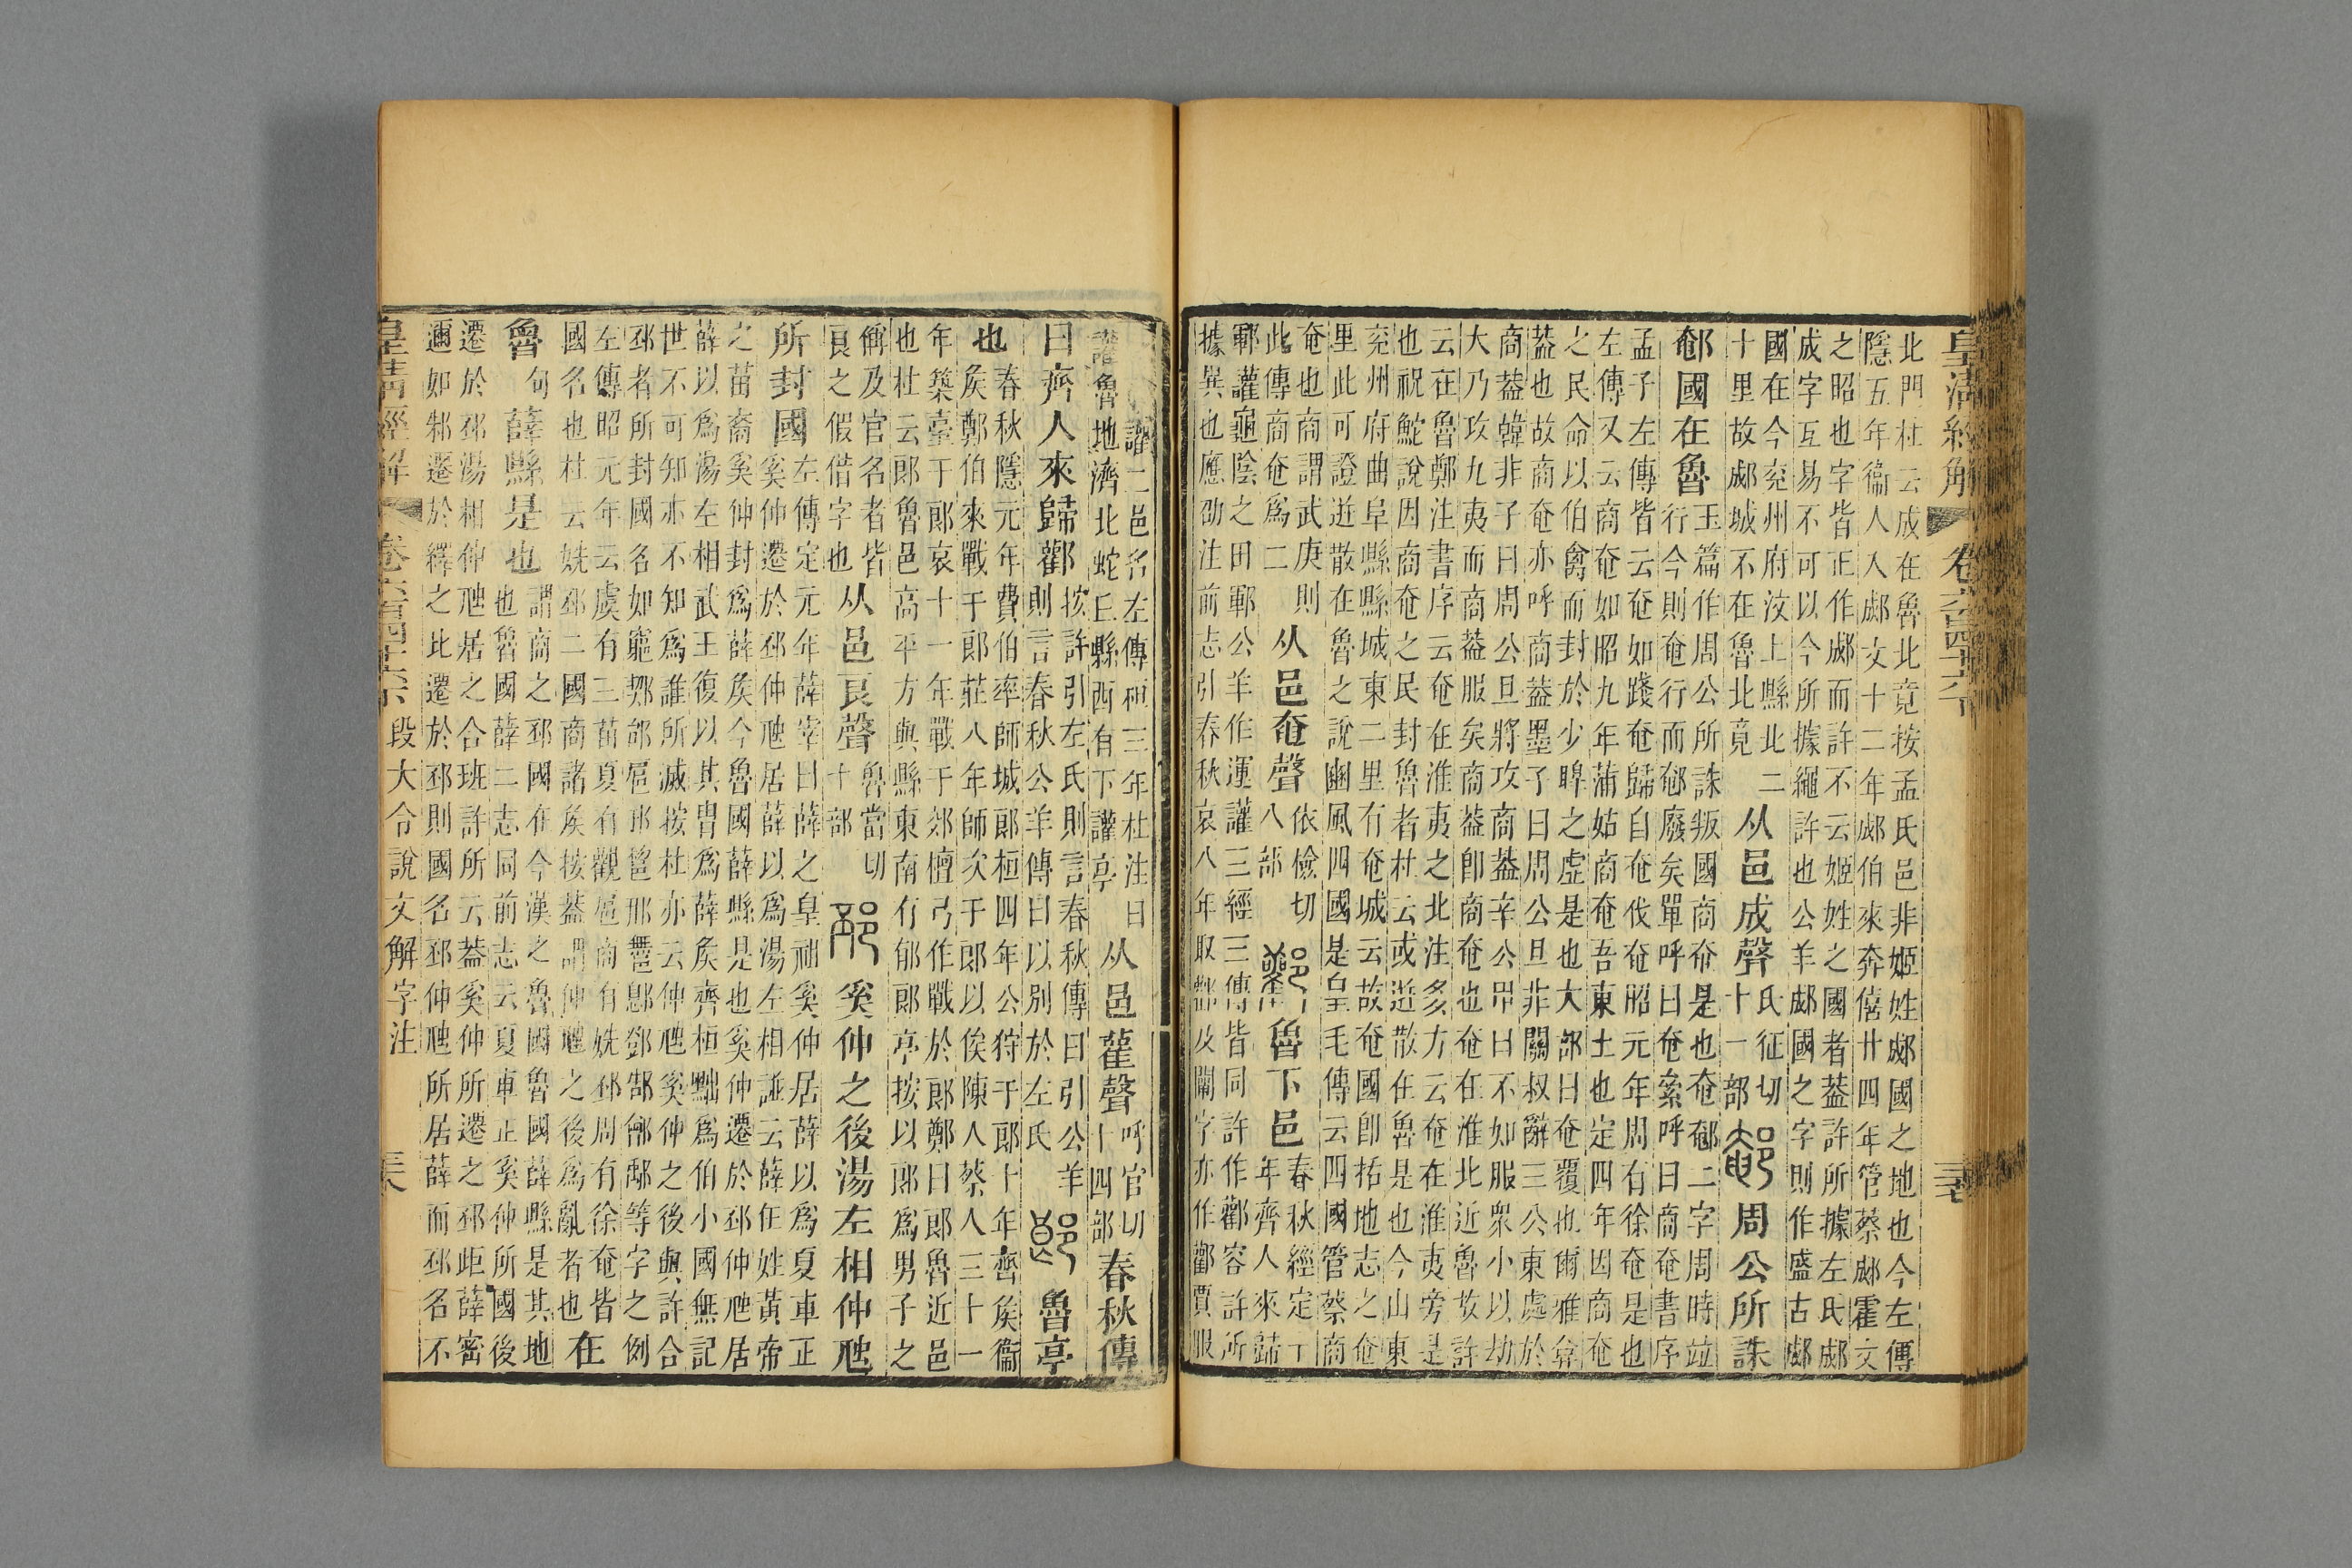 皇清經解 卷六百四十六
北門杜云成在魯北竟按孟氏邑非姬姓郕國之地也今左傳
隱五年衞人入郕文十二年郕伯來奔僖廿四年管蔡郕霍文
之昭也字皆正作郕而許不云姬姓之國者葢許所據左氏郕
成字互易不可以今所據繩許也公羊郕國之字則作盛古郕
國在今兖州府汶上縣北二
十里故郕城不在魯北竟
从邑成聲
氏征切
十一部
䣍 周公所誅
䣍國在魯
玉篇作周公所誅叛國商奄是也奄䣍二字周時竝
行今則奄行而䣍廢矣單呼曰奄絫呼曰商奄書序
孟子左傳皆云奄如踐奄歸自奄伐奄昭元年周有徐奄是也
左傳又云商奄如昭九年蒲姑商奄吾東土也定四年因商奄
之民命以伯禽而封於少皞之虛是也大部曰奄覆也爾雅弇
葢也故商奄亦呼商葢墨子曰周公旦非關叔辭三公東處於
商葢韓非子曰周公旦將攻商葢辛公甲曰不如服衆小以劫
大乃攻九夷而商葢服矣商葢卽商奄也奄在淮北近魯故許
云在魯鄭注書序云奄在淮夷之北注多方云奄在淮夷旁是
也祝鮀說因商奄之民封魯者杜云或迸散在魯是也今山東
兖州府曲阜縣縣城東二里有奄城云故奄國卽括地志之奄
里此可證迸散在魯之說豳風四國是皇毛傳云四國管蔡商
奄也商謂武庚則
此傳商奄爲二
从邑奄聲
依儉切
八部
酄 魯下邑
春秋經定十
年齊人來歸
鄆讙龜陰之田鄆公羊作運讙三經三傳皆同許作酄容許所
據異也應劭注前志引春秋哀八年取酄及闡字亦作酄賈服
讙二邑名左傳桓三年杜注曰
讙魯地濟北蛇丘縣西有下讙亭
从邑雚聲
呼官切
十四部
春秋傳
曰齊人來歸酄
按許引左氏則言春秋傳曰引公羊
則言春秋公羊傳曰以別於左氏
郎 魯亭
也
春秋隱元年費伯率師城郎桓四年公狩于郎十年齊矦衞
矦鄭伯來戰于郎莊八年師次于郎以俟陳人蔡人三十一
年築臺于郎哀十一年戰于郊檀弓作戰於郎鄭曰郎魯近邑
也杜云郎魯邑高平方與縣東南有郁郎亭按以郎爲男子之
偁及官名者皆
良之假借字也
从邑良聲
魯當切
十部
邳 奚仲之後湯左相仲虺
所封國
左傳定元年薛宰曰薛之皇祖奚仲居薛以爲夏車正
奚仲遷於邳仲虺居薛以爲湯左相譜云薛任姓黃帝
之苗裔奚仲封爲薛矦今魯國薛縣是也奚仲遷於邳仲虺居
薛以爲湯左相武王復以其胄爲薛矦齊桓黜爲伯小國無記
世不可知亦不知爲誰所滅按杜亦云仲虺奚仲之後與許合
邳者所封國名如 郜扈 鄧 等字之例
左傳昭元年云虞有三苗夏有觀扈商有姺邳周有徐奄皆
國名也杜云姺邳二國商諸矦按葢謂仲虺之後爲亂者也
在
魯
句
薛縣是也
謂商之邳國在今漢之魯國魯國薛縣是其地
也魯國薛二志同前志云夏車正奚仲所國後
遷於邳湯相仲虺居之合班許所云葢奚仲所遷之邳距薛密
邇如邾遷於繹之比遷於邳則國名邳仲虺所居薛而邳名不
皇清經解 卷六百四十六 段大令說文解字注